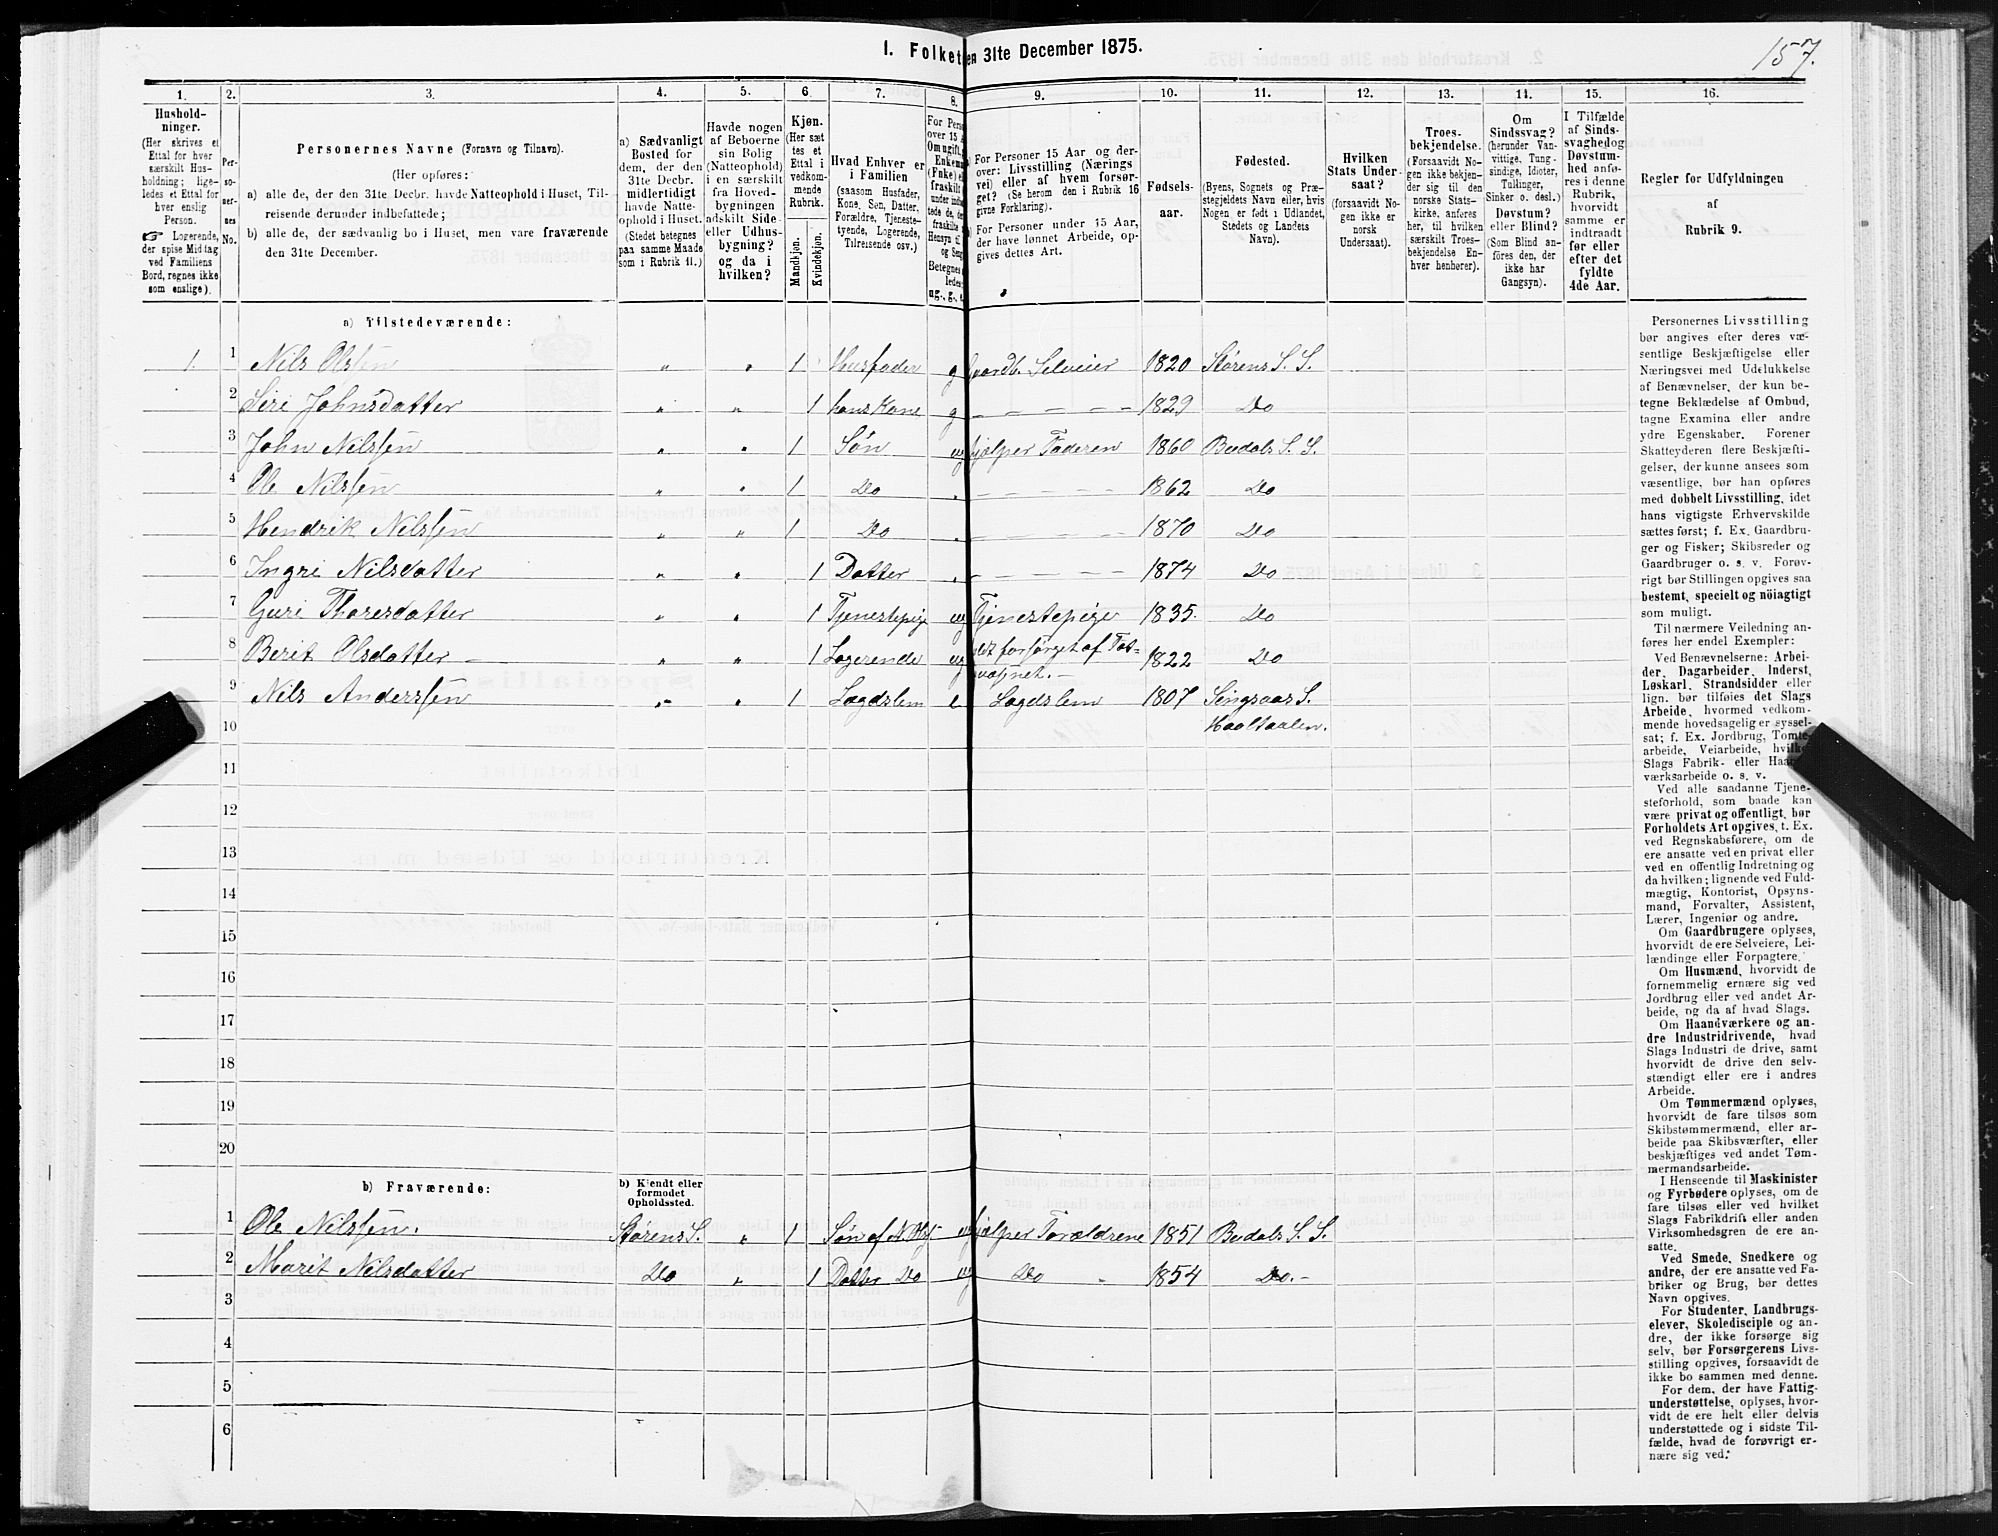 1. Folket en 31te December 1875.
157.
1.
Hushold-
ninger.
(Her skrives et
Ettal for hver
særskilt Hus-
holdning; lige-
ledes et Ettal for
hver enslig
Person.
☞ Logerende,
der spise Middag
ved Familiens
Bord, regnes ikke
som enslige).
2.
Per-
so-
ner-
nes
No.
3.
Personernes Navne (Fornavn og Tilnavn).
(Her opføres:
a) alle de, der den 31te Decbr. havde Natteophold i Huset, Til-
reisende derunder indbefattede;
b) alle de, der sædvanlig bo i Huset, men vare fraværende
den 31te December.
4.
a) Sædvanligt
Bosted for
dem, der den
31te Decbr.
midlertidigt
havde Natte-
ophold i Huset.
(Stedet betegnes
paa samme Maade
som i Rubrik 11.)
5.
Havde nogen
af Beboerne
sin Bolig
(Natteophold)
i en særskilt
fra Hoved-
bygningen
adskilt Side-
eller Udhus-
bygning?
og da i
hvilken?
6.
Kjøn.
(Her sæt
tes et
Ettal i
vedkom-
mende
Rubrik.
Mandkjøn.
Kvindekjøn.
7.
Hvad Enhver er
i Familien
(saasom Husfader,
Kone, Søn, Datter,
Forældre, Tjeneste-
tyende, Logerende,
Tilreisende osv.)
8.
9.
For Personer 15 Aar og der-
over: Livsstilling (Nærings
vei) eller af hvem forsør-
get? (Se herom den i Rubrik 16
givne Forklaring).
For Personer under 15 Aar,
der have lønnet Arbeide, op-
gives dettes Art.
10.
Fødsels-
aar.
11.
Fødested.
(Byens, Sognets og Præ-
stegjeldets Navn eller, hvis
Nogen er født i Udlandet,
Stedets og Landets
Navn).
12.
Hvilken
Stats Under-
saat?
(forsaavidt No-
gen ikke er
norsk
Undersaat).
13.
Troes-
bekjendelse.
(Forsaavidt No-
gen ikke bekjen-
der sig til den
norske Stats-
kirke, anføres
her, til hvilken
særskilt Troes-
bekjendelse En-
hver henhører).
14.
Om
Sindssvag?
(herunder Van-
vittige, Tung-
sindige, Idioter,
Tullinger,
Sinker o. desl.)
Døvstum?
eller Blind?
(Som Blind an-
føres den, der
ikke har
Gangsyn).
15.
I Tilfælde
af Sinds-
svaghed og
Døvstum-
hed anfø-
res i denne
Rubrik,
hvorvidt
samme er
indtraadt
før eller
efter det
fyldte
4de Aar.
16.
Regler for Udfyldningen
af
Rubrik 9.
a) Tilstedeværende:
1. 1 Nils Olssen „ „ 1 Husfader g Gaardb. Selveier 1820 Størens S. S.
2 Siri Johnsdatter „ „ 1 hans Kone g — — — — 1829 Do
3 John Nilssen „ „ 1 Søn ug hjælper Faderen 1860 Budals S. S.
4 Ole Nilssen „ „ 1 Do „ — — — — 1862 Do
5 Hendrik Nilssen „ „ 1 Do „ — — — — 1870 Do
6 Ingri Nilsdatter „ „ 1 Datter „ — — — — 1874 Do
7 Guri Thoresdatter „ „ 1 Tjenestepige ug Tjenestepige 1835. Do
8 Berit Olsdatter — „ „ 1 Logerende ug forsørget af Fat=
væsnet. — 1822 Do
9 Nils Anderssen „ „ 1 Lægdslem e Lægdslem 1807 Singsaas S.
10 Haaltaalen.
11
12
13
14
15
16
17
18
19
20
b) Fraværende:
b) Kjendt eller
formodet
Opholdssted.
1 Ole Nilssen. Størens S. „ 1 Søn af N. Ols ug hjælper Forældrene 1851 Budals S. S.
2 Marit Nilsdatter Do „ 1 Datter Do ug Do „ 1854 Do. —
3
4
5
6
Personernes Livsstilling
bør angives efter deres væ-
sentlige Beskjæftigelse eller
Næringsvei med Udelukkelse
af Benævnelser, der kun be-
tegne Beklædelse af Ombud,
tagne Examina eller andre
ydre Egenskaber. Forener
Skatteyderen flere Beskjæfti-
gelser, der kunne ansees som
væsentlige, bør han opføres
med dobbelt Livsstilling, idet
hans vigtigste Erhvervskilde
sættes først; f. Ex. Gaardbru-
ger og Fisker; Skibsreder og
Gaardbruger o. s. v. Forøv-
rigt bør Stillingen opgives saa
bestemt, specielt og nöiagtigt
som muligt.
Til nærmere Veiledning an-
føres her endel Exempler:
Ved Benævnelserne: Arbei-
der, Dagarbeider, Inderst,
Løskarl, Strandsidder eller
lign. bør tilføies det Slags
Arbeide, hvormed vedkom-
mende hovedsagelig er syssel-
sat; f. Ex. Jordbrug, Tomte-
arbeide, Veiarbeide, hvilket
Slags Fabrik- eller Haand-
værksarbeide o. s. v.
Ved alle saadanne Tjene-
steforhold, som baade kan
være privat og offentligt, bør
Forholdets Art opgives, t. Ex.
ved Regnskabsførere, om de
ere ansatte ved en privat eller
ved en offentlig Indretning og
da hvilken; lignende ved Fuld-
mægtig, Kontorist, Opsyns-
mand, Forvalter, Assistent,
Lærer, Ingeniør og andre.
Om Gaardbrugere oplyses,
hvorvidt de ere Selveiere, Lei-
lændinge eller Forpagtere.
Om Husmænd, hvorvidt de
fornemmelig ernære sig ved
Jordbrug eller ved andet Ar-
beide, og da af hvad Slags.
Om Haandværkere og an-
dre Industridrivende, hvad
Slags Industri de drive, samt
hvorvidt de drive den selv-
stændigt eller ere i andres
Arbeide.
Om Tømmermænd oplyses,
hvorvidt de fare tilsøs som
Skibstømmermænd, eller ar-
beide paa Skibsværfter, eller
beskjæftiges ved andet Tøm-
mermandsarbeide.
I Henseende til Maskinister
og Fyrbødere oplyses, om de
fare tilsøs eller ved hvilket
Slags Fabrikdrift eller anden
Virksomhedsgren de ere an-
satte.
Ved Smede, Snedkere og
andre, der ere ansatte ved Fa-
briker og Brug, bør dettes
Navn opgives.
For Studenter, Landbrugs-
elever, Skoledisciple og an-
dre, der ikke forsørge sig
selv, bør Forsørgerens Livs-
stilling opgives, forsaavidt de
ikke bo sammen med denne.
For dem, der have Fattig-
understøttelse, oplyses, hvor-
vidt de ere helt eller delvis
understøttede og i sidste Til-
fælde, hvad de forøvrigt er-
nære sig ved.